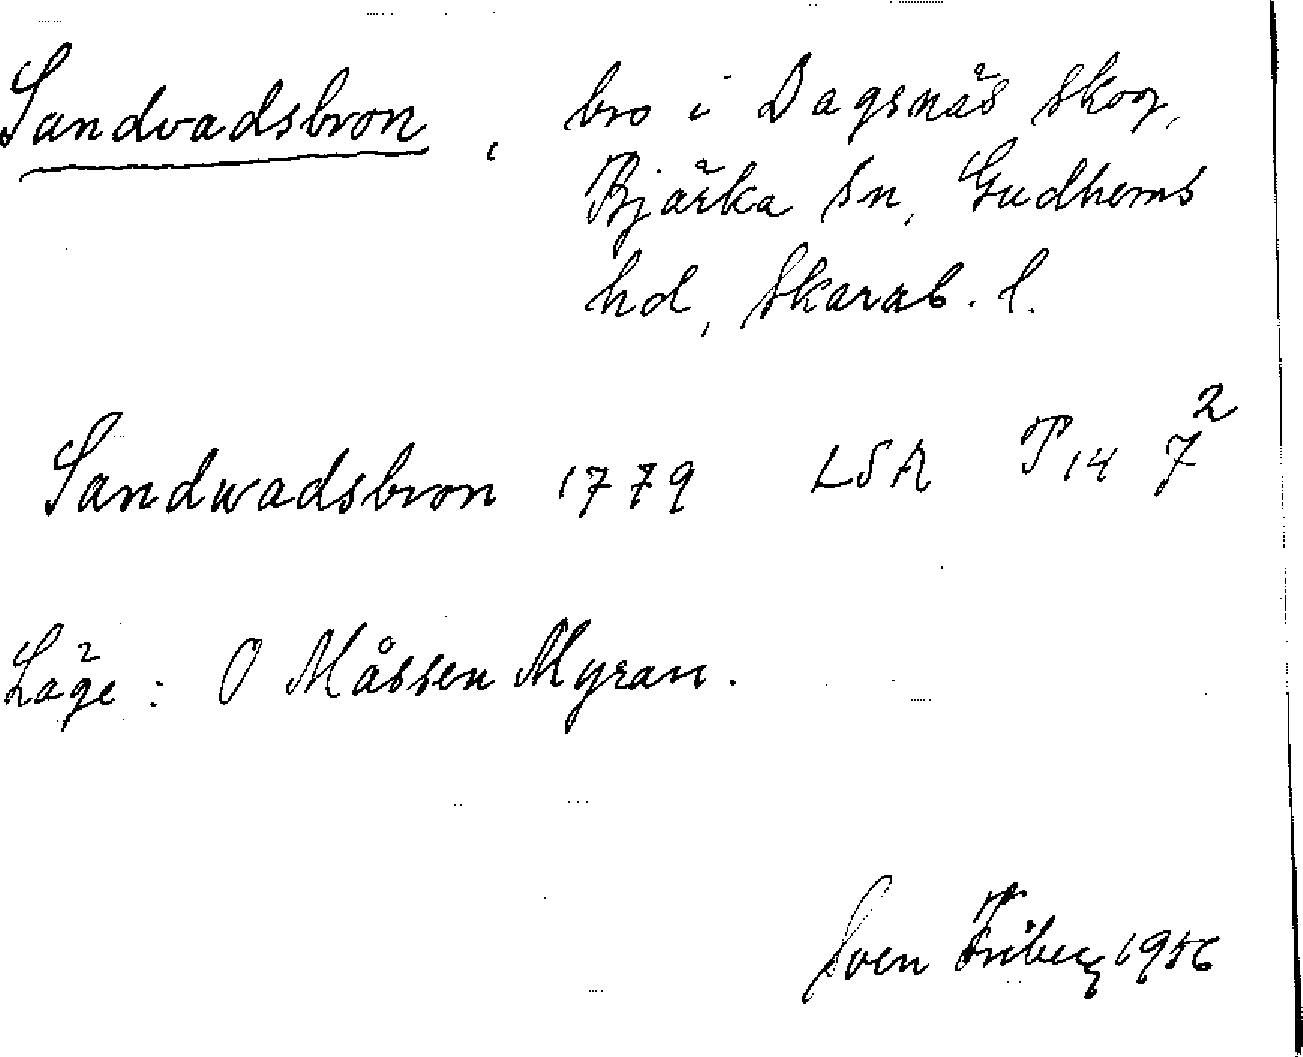 Sandvadsbron, bro i Dagsnäs skog,
Bjärka sn, Gudhems
hd, Skarab. l.
Sandwadsbron 1779 LSA P14 7²
Läge: O Måssen Myran.
Sven Friberg 1956